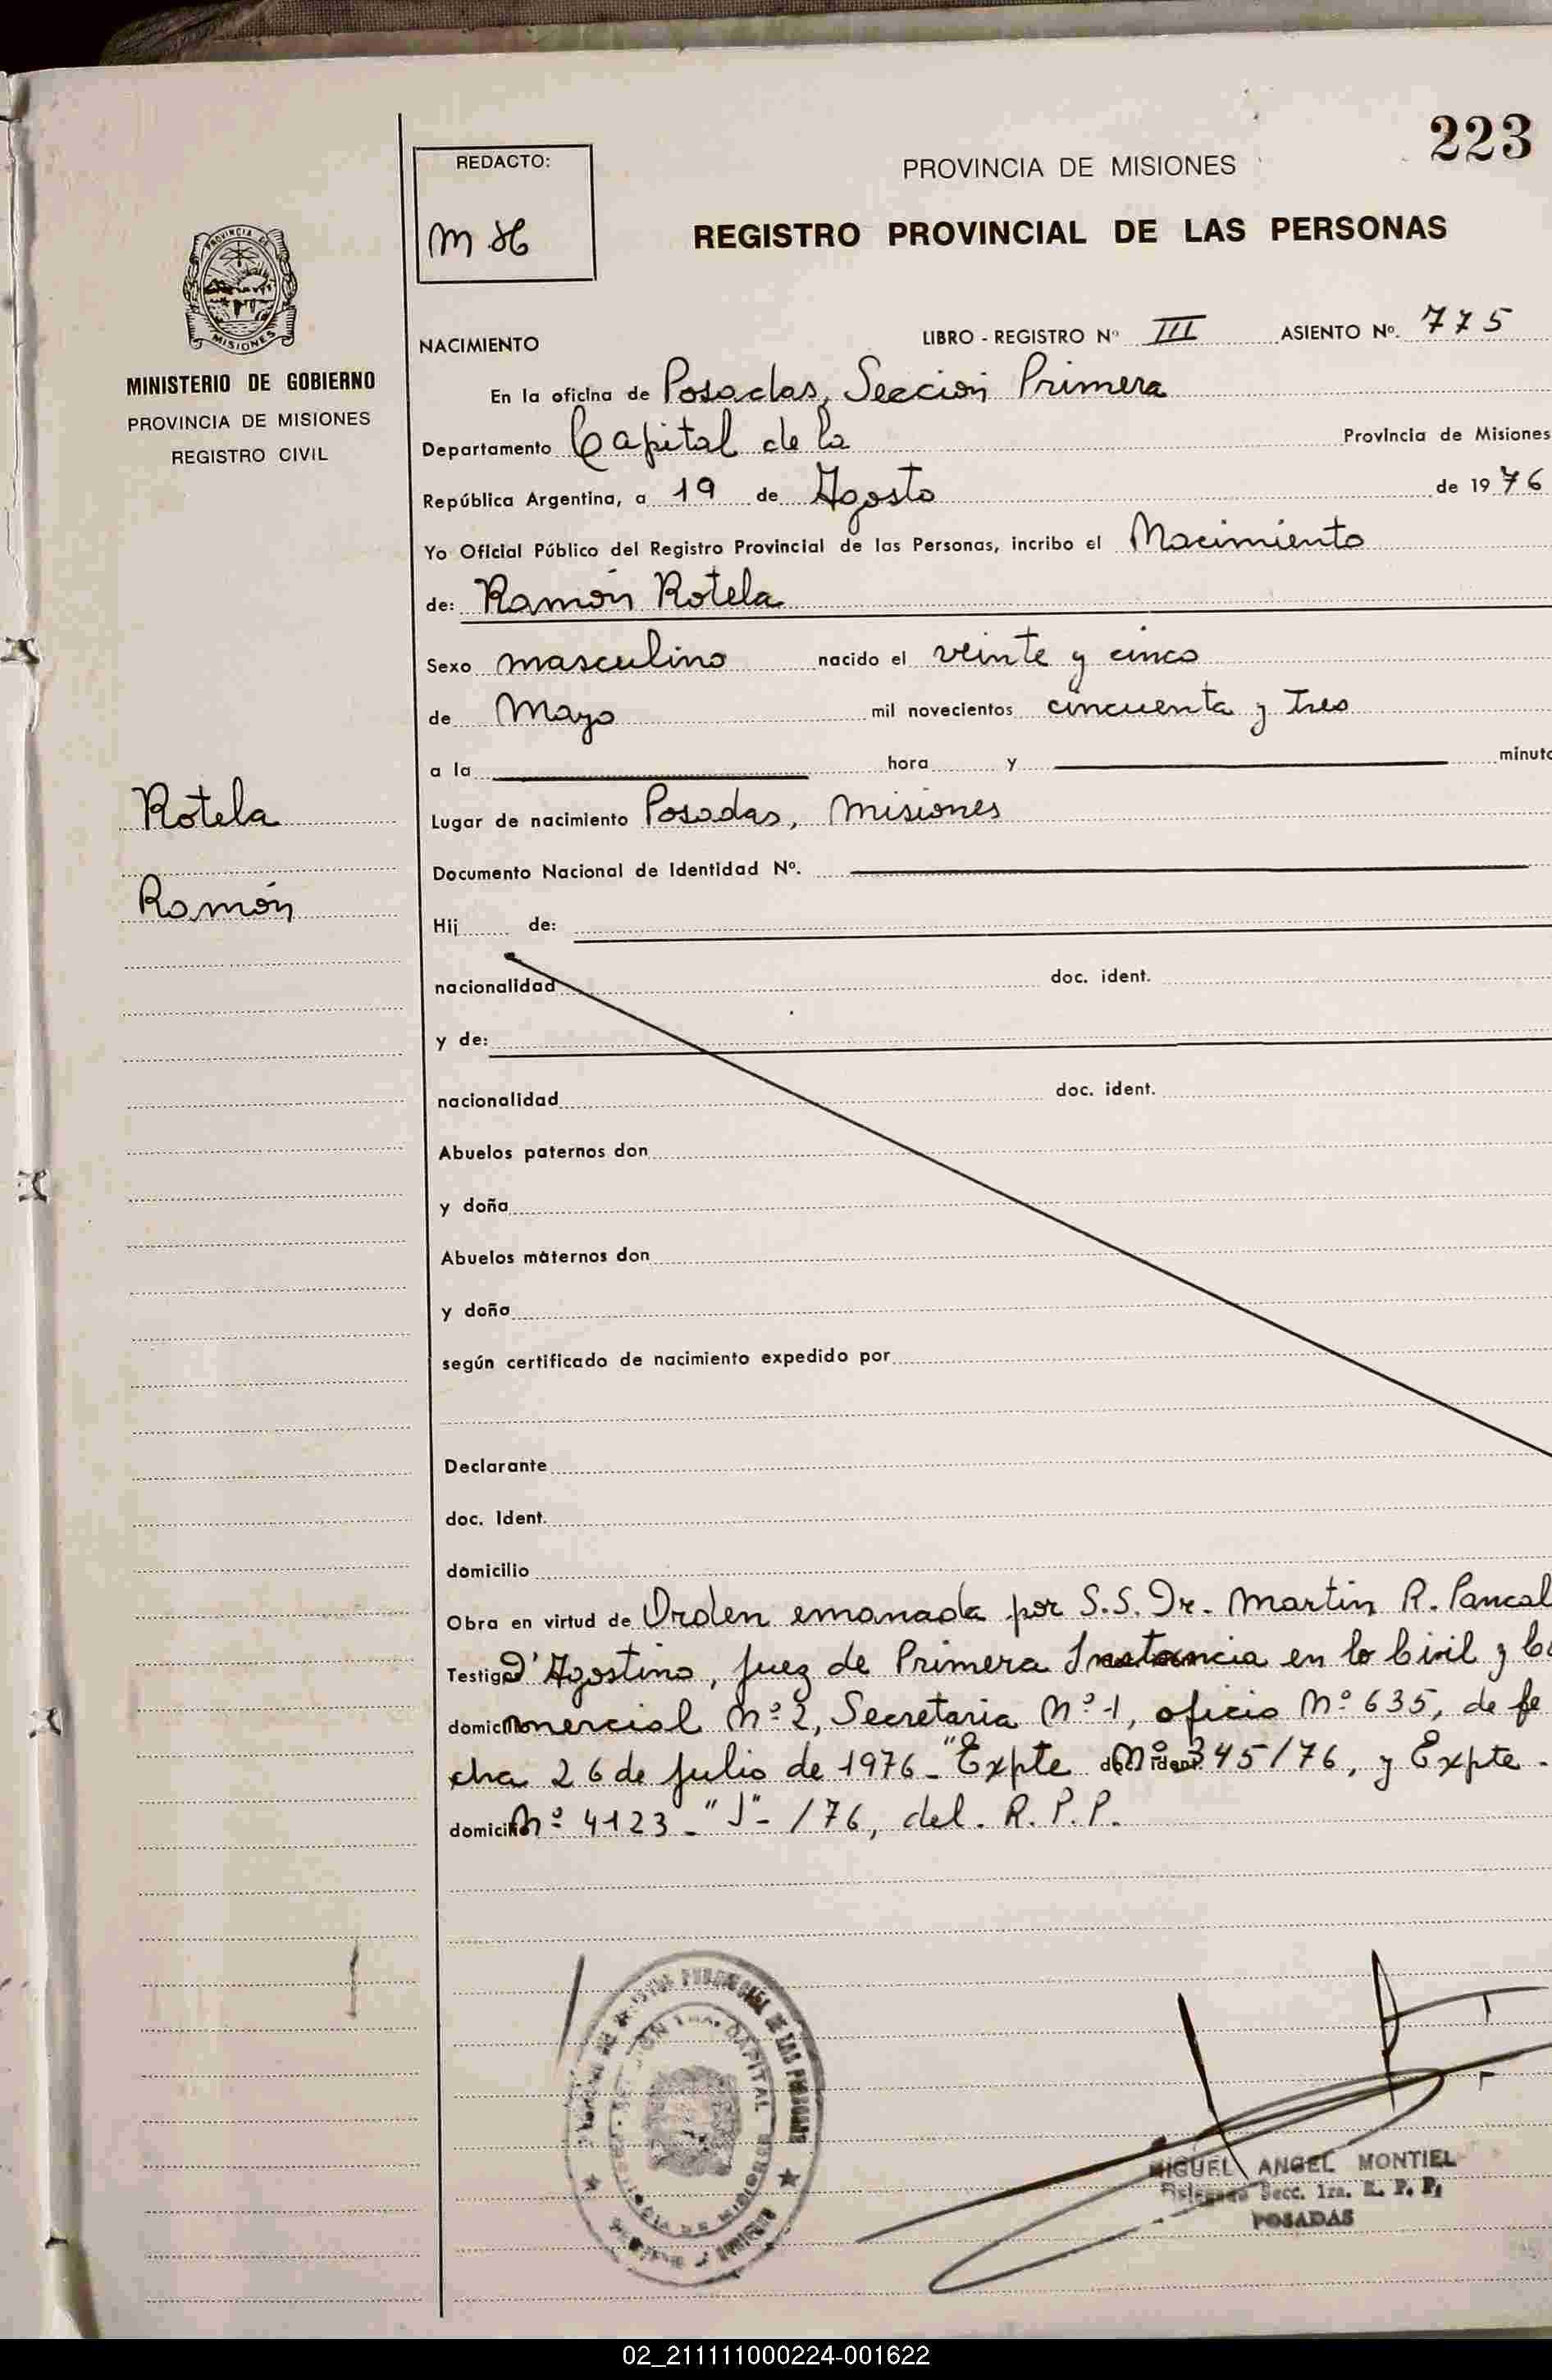 223
REDACTO:
PROVINCIA DE MISIONES
MH
REGISTRO PROVINCIAL DE LAS PERSONAS
PROVINCIA DE
MISIONES
MINISTERIO DE GOBIERNO
PROVINCIA DE MISIONES
REGISTRO CIVIL
NACIMIENTO LIBRO - REGISTRO Nº III ASIENTO Nº. 775
En la oficina de Posadas, Seccion Primera
Departamento Capital de la Provincia de Misiones
República Argentina, a 19 de Agosto de 1976
Yo Oficial Público del Registro Provincial de las Personas, incribo el Nacimiento
de: Ramón Rotela
Sexo masculino nacido el veinte y cinco
de Mayo mil novecientos cincuenta y tres
a la hora y minuto
Rotela
Lugar de nacimiento Posadas, Misiones
Documento Nacional de Identidad Nº.
Ramón
Hij de:
nacionalidad doc. ident.
y de:
nacionalidad doc. ident.
Abuelos paternos don
y doña
Abuelos maternos don
y doña
según certificado de nacimiento expedido por
Declarante
doc. Ident.
domicilio
Obra en virtud de Orden emanada por S.S. Dr. Martin R. Pancal
Testigo D'Agostino, Juez de Primera Instancia en lo Civil y Co
domic mercial Nº 2, Secretaria Nº 1, oficio Nº 635, de fe
cha 26 de Julio de 1976 - "Expte doc. ident. Nº 345/76, y Expte -
domicili Nº 4123 - "J" - /76, del. R.P.P.
CAPITAL
MIGUEL ANGEL MONTIEL
Secc. 1ra. R. P. P.
POSADAS
02_211111000224-001622